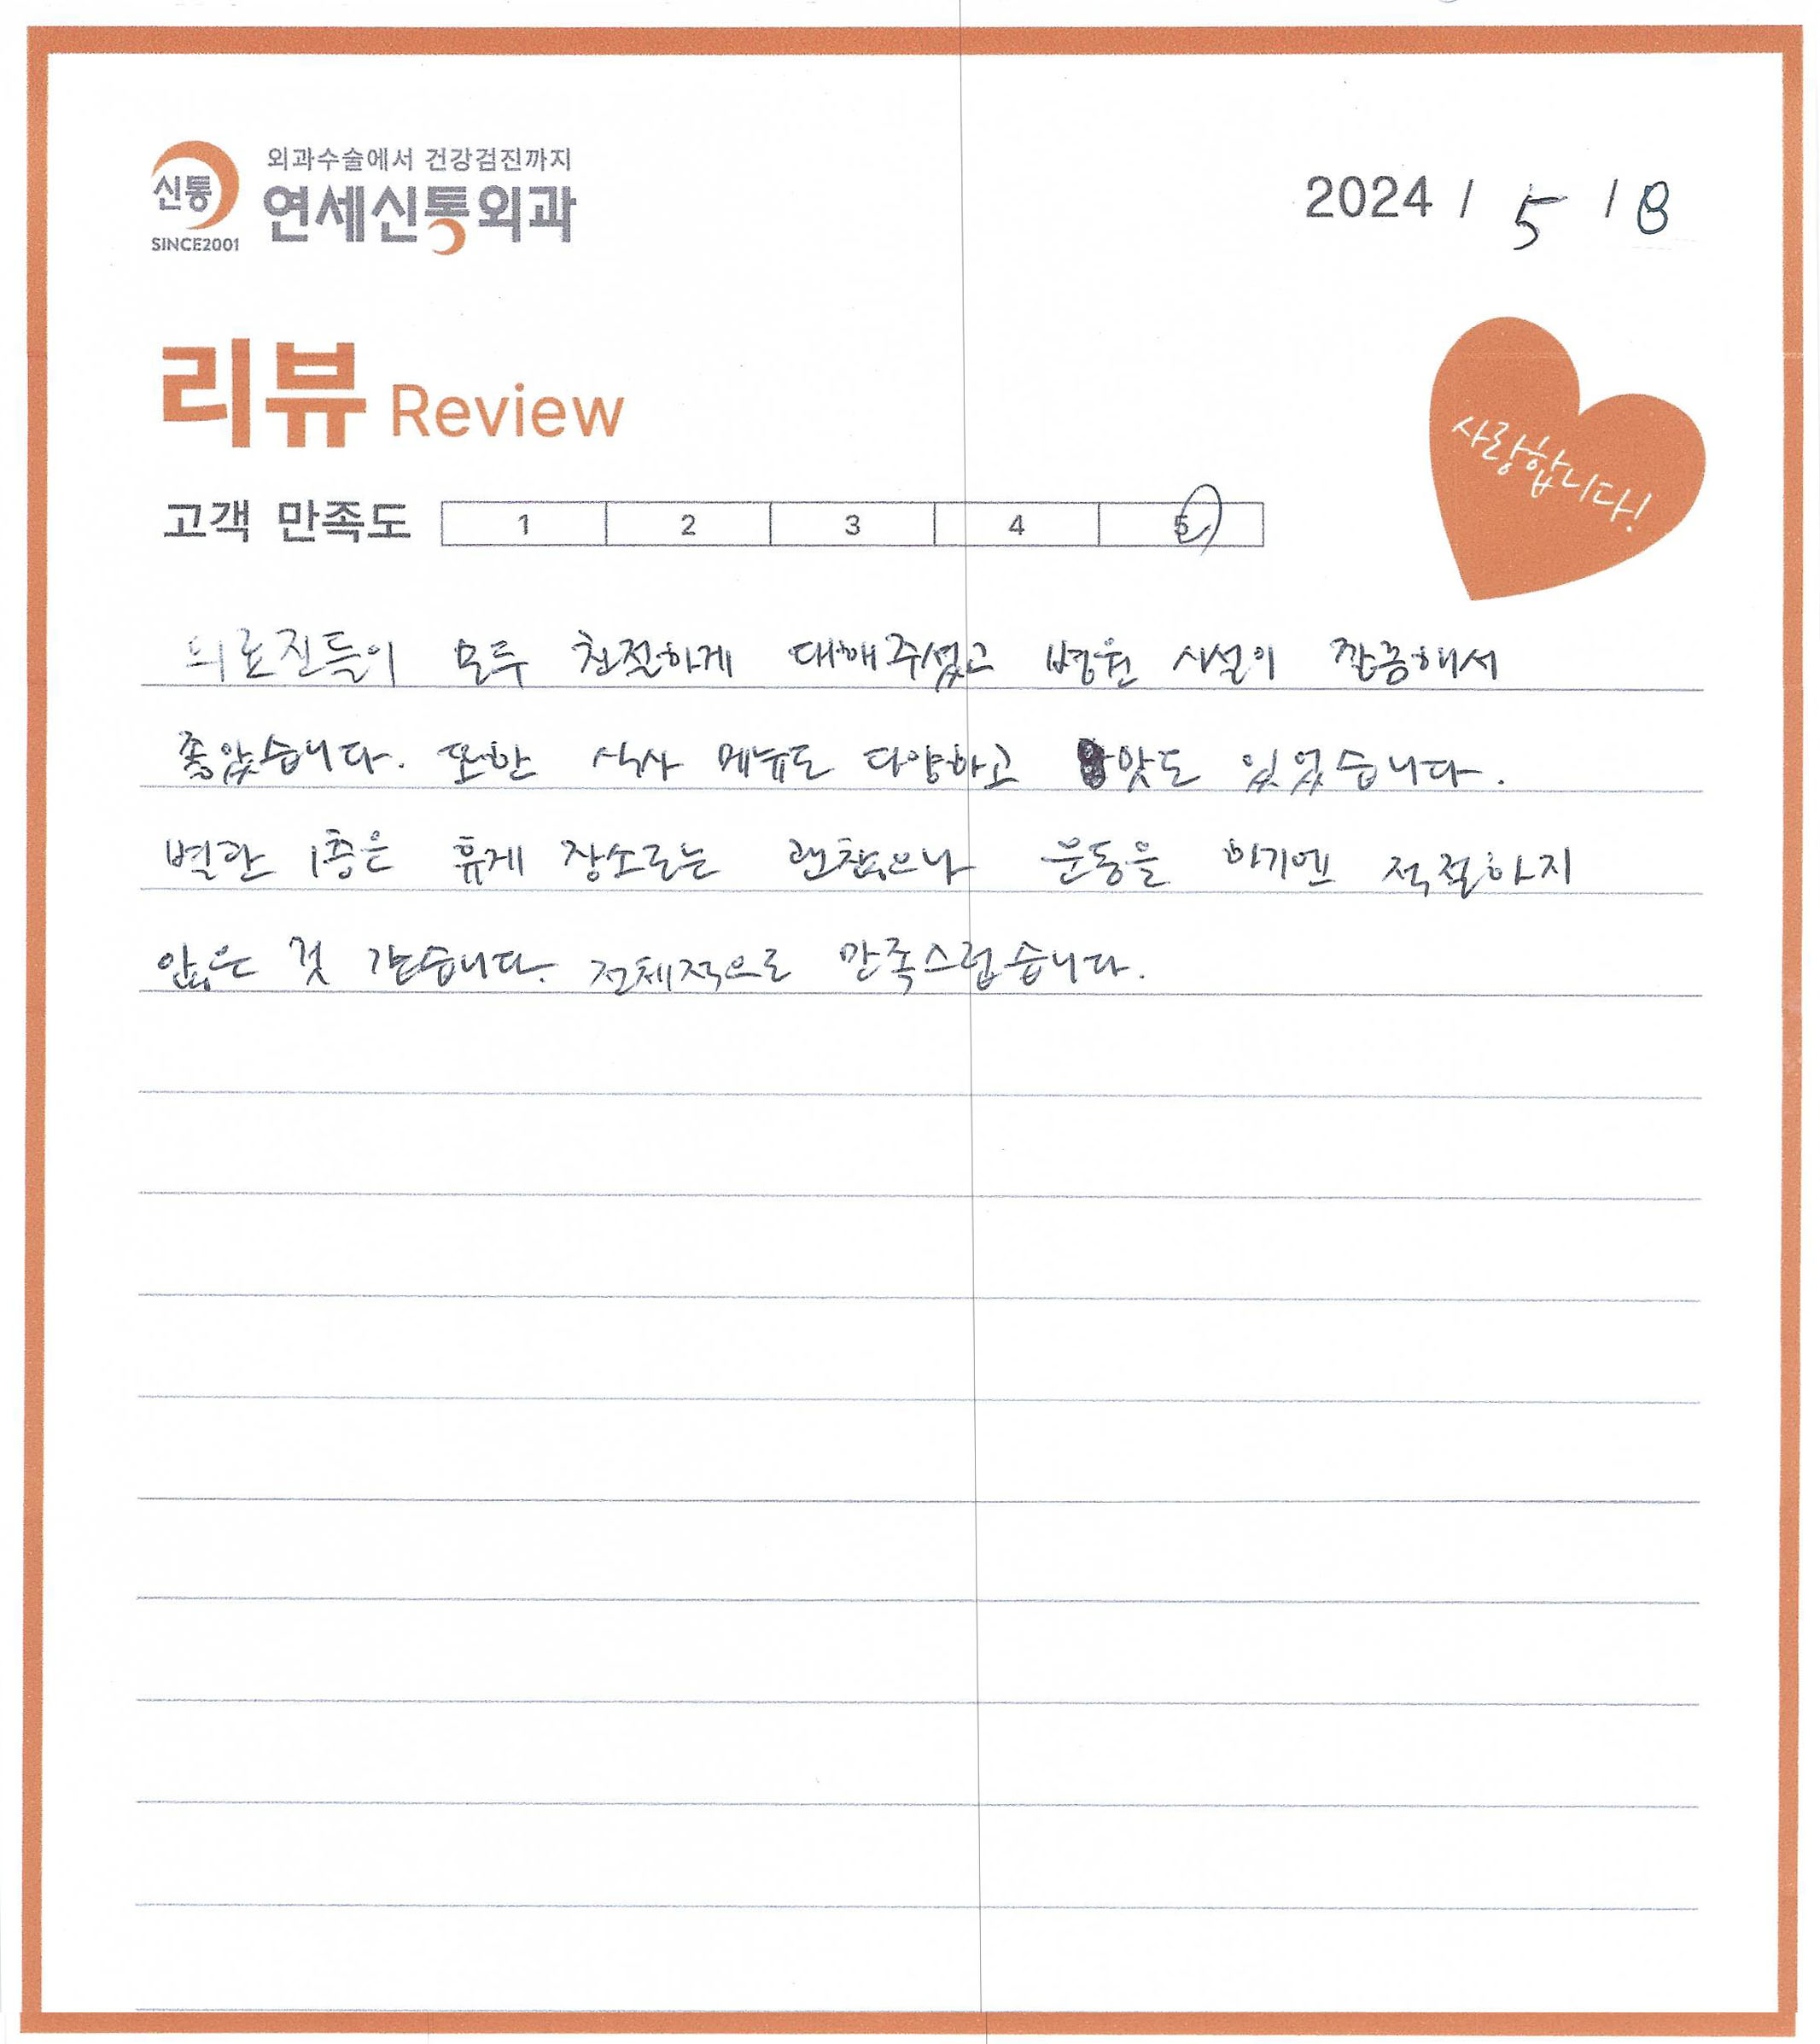 외과수술에서 건강검진까지
신통 연세신통외과
SINCE2001
2024 / 5 / 8
리뷰 Review
사랑합니다!
고객 만족도 1 2 3 4 5
의료진들이 모두 친절하게 대해주셨고 병원 시설이 깔끔해서
좋았습니다. 또한 식사 메뉴도 다양하고 맛도 있었습니다.
별관 1층은 휴게 장소로는 괜찮으나 운동을 하기엔 적절하지
않은 것 같습니다. 전체적으로 만족스럽습니다.